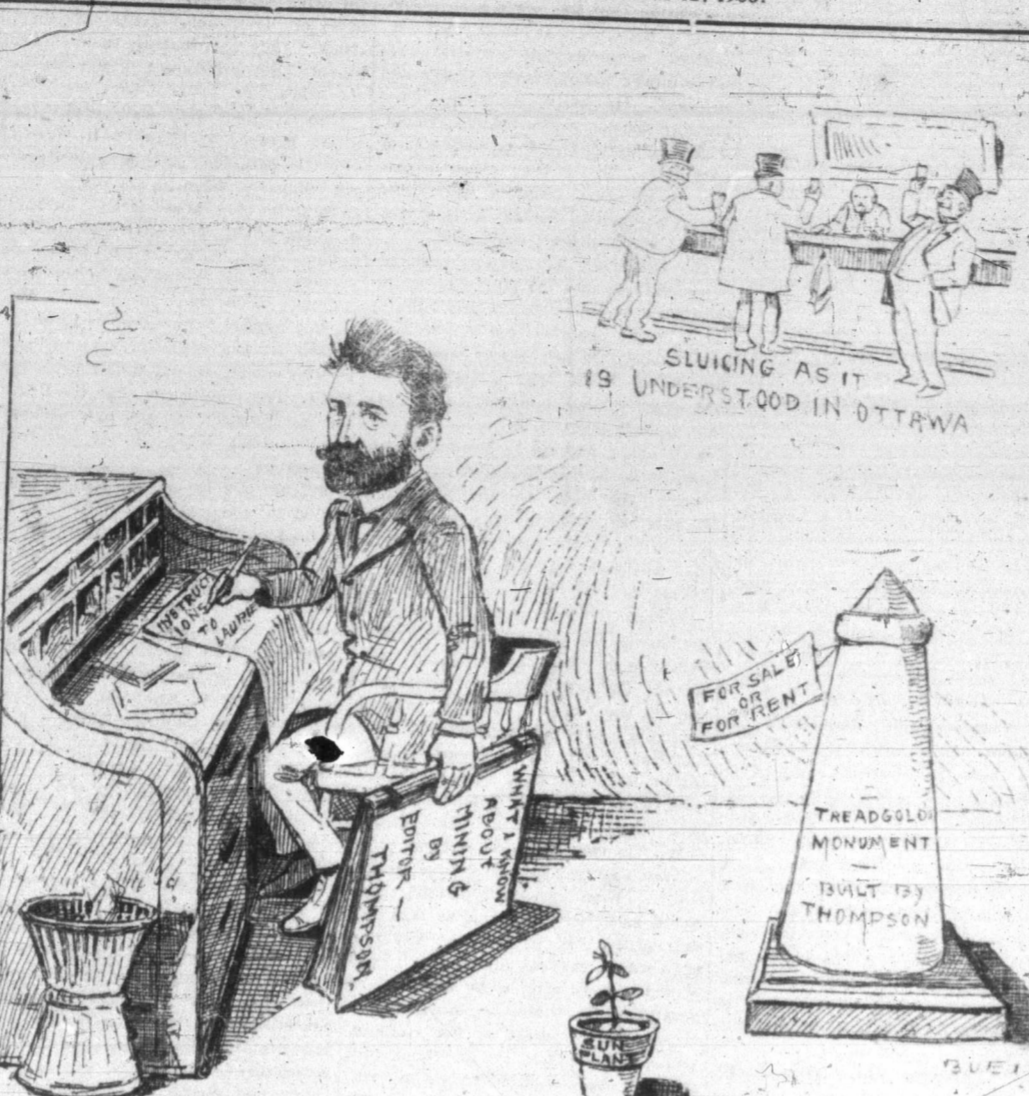 SLUICING AS IT
IS UNDERSTOOD IN OTTAWA
INSTRUCT
IONS
TO
LAURIE
FOR SALE
OR
FOR RENT
WHAT I KNOW
ABOUT
MINING
By
EDITOR —
THOMPSON
TREADGOLD
MONUMENT
—
BUILT By
THOMPSON
SUN
PLANT